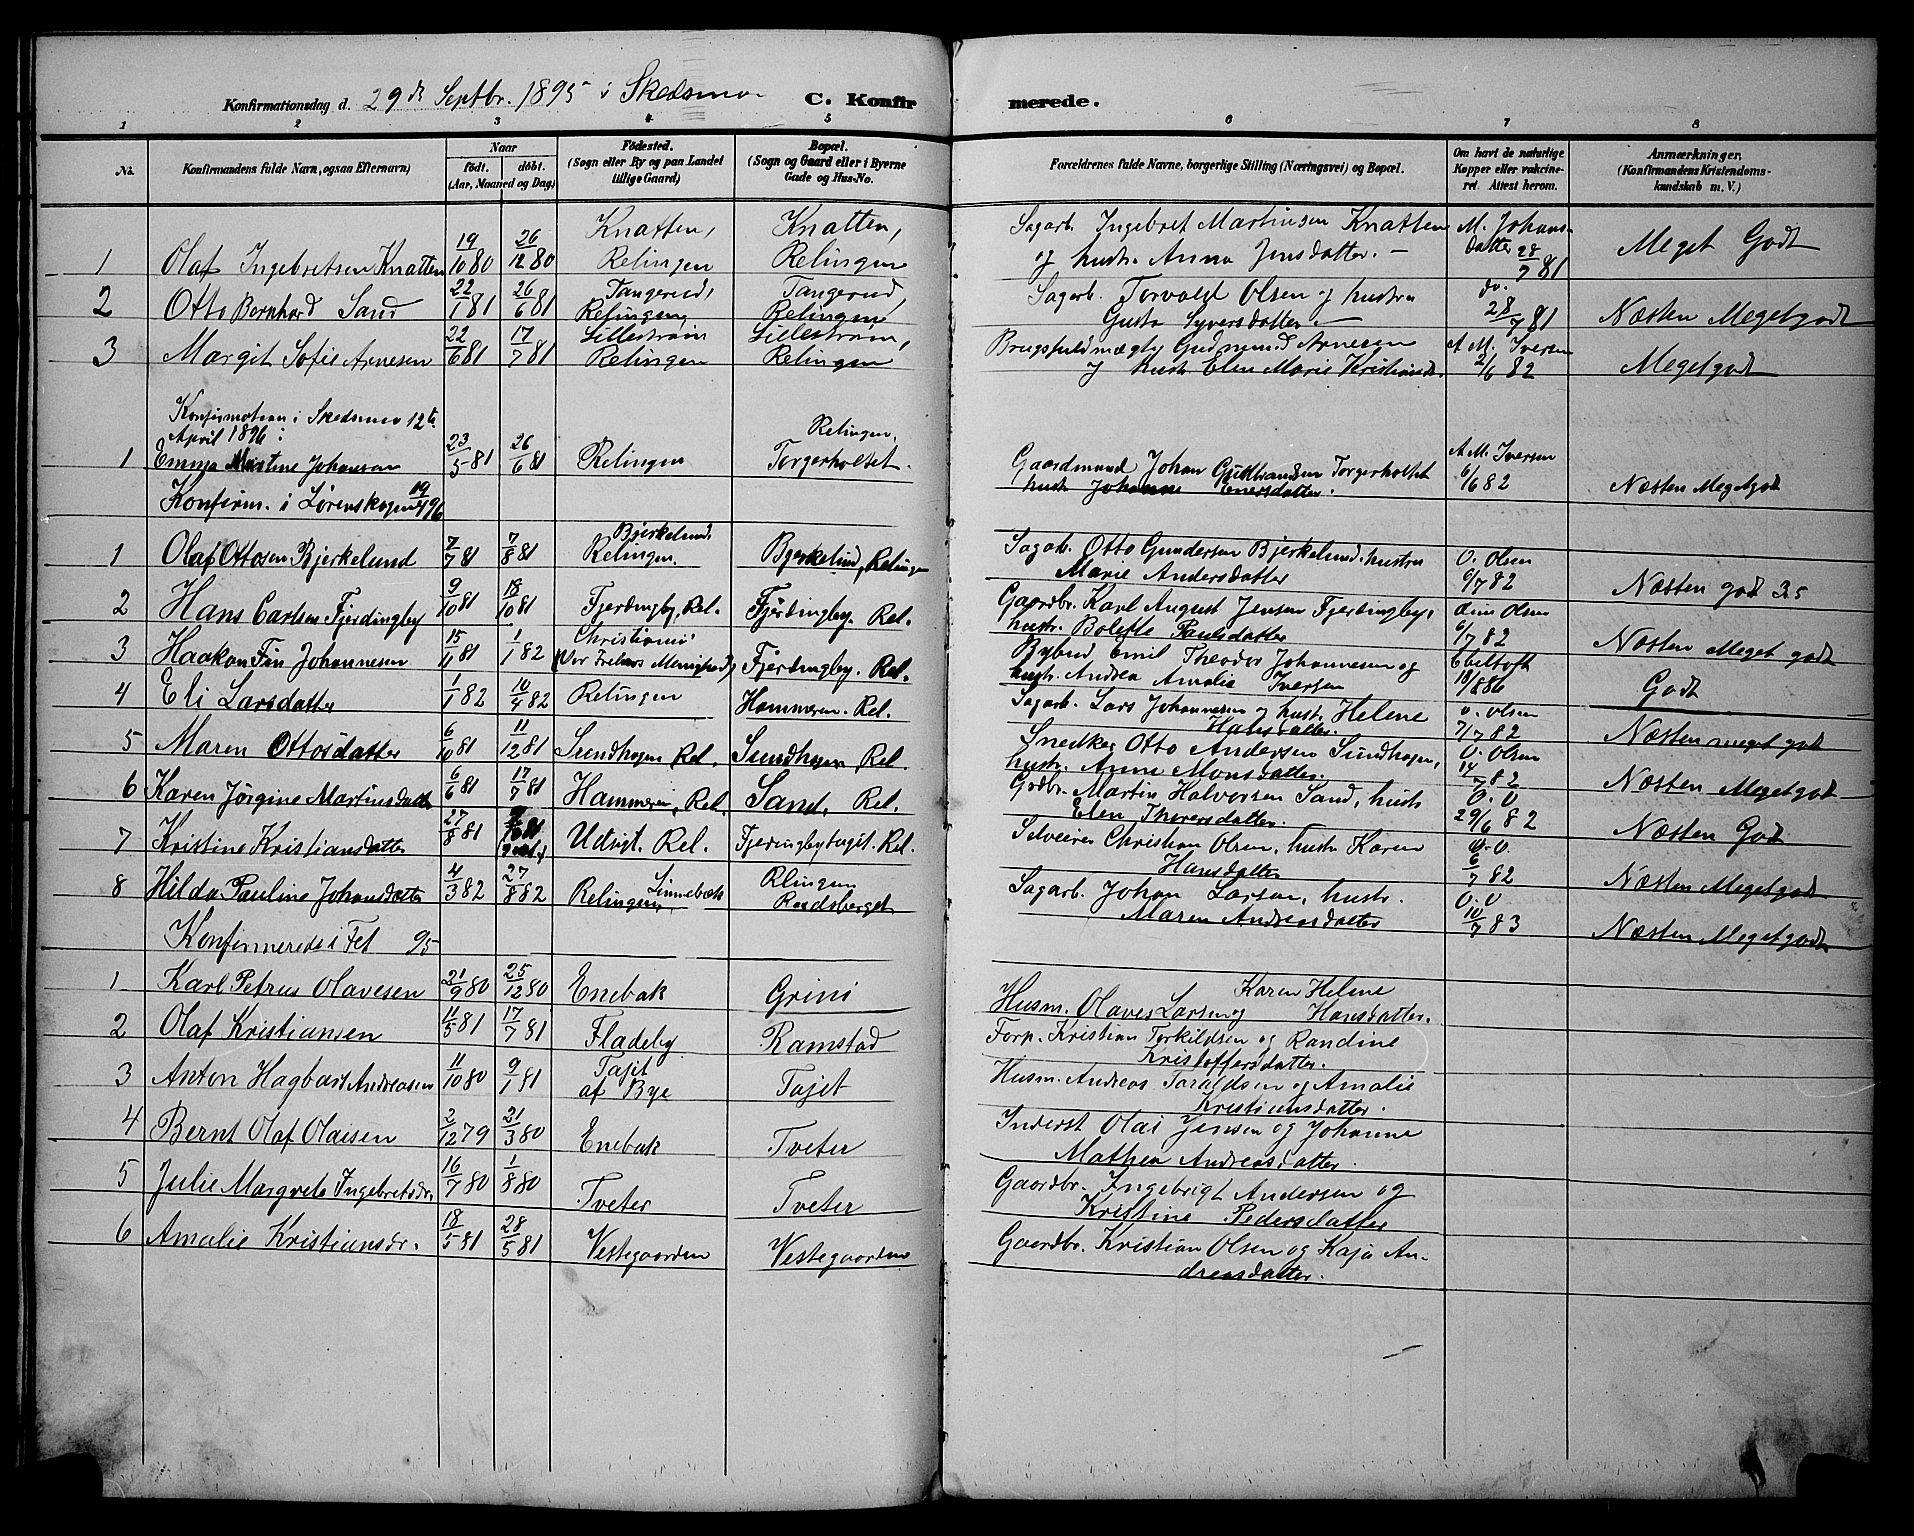 Konfirmationsdag d. 29de Septbr. 1895 i Skedsmo. C. Konfir merede.
1 2 3 4 5 6 7 8
No. Konfirmandens fulde Navn, ogsaa Efternavn) Naar født. døbt. (Aar, Maaned og Dag) Fødested. (Sogn eller By og paa Landet tillige Gaard) Bopæl. (Sogn og Gaard eller i Byerne Gade og Hus-No. Forældrenes fulde Navne, borgerlige Stilling (Næringsvei) og Bopæl. Om havt de naturlige Kopper eller vakcineret. Attest herom. Anmærkninger. (Konfirmandens Kristendomskundskab m. V.)
1 Olaf Ingebretsen Knatten 19/10 80 26/12 80 Knatten, Relingen Knatten, Relingen Sagarb. Ingebret Martinsen Knatten og hustr. Anna Jensdatter. M. Johansdatter 28/7 81 Meget Godt
2 Otto Bernhard Sand 22/1 81 26/6 81 Tangerud, Relingen Tangerud, Relingen Sagarb. Torvald Olsen og hustru Gusta Syversdatter. do. 28/7 81 Næsten Megetgodt
3 Margit Sofie Arnesen 22/6 81 17/7 81 Lillestrøm Relingen Lillestrøm, Relingen Brugsfuldmægtig Gudmund Arnesen og hustr. Elen Marie Kristiansd. A M. Iversen 2/6 82 Megetgodt
Konfirmation i Skedsmo 12te April 1896:
1 Emma Martine Johansen 23/5 81 26/6 81 Relingen Relingen, Torgerholtet. Gaardmand Johan Gudbrandsen Torgerholtet hustr. Johanne Enersdatter. A M. Iversen 6/6 82 Næsten Megetgod
Konfirm. i Lørenskogen 19/4 96
1 Olaf Ottosen Bjerkelund 7/7 81 7/8 81 Bjerkelund, Relingen. Bjerkelund, Relingen Sagarb. Otto Gundersen Bjerkelund. hustru Marie Andersdatter O. Olsen 6/7 82 Næsten god 3.5
2 Hans Carlsen Fjerdingby 9/10 81 18/10 81 Fjerdingby, Rel. Fjerdingby. Rel. Gaardbr. Karl August Jensen Fjerdingby, hustr. Bolette Paulsdatter Olsen 6/7 82 Næsten Meget godt
3 Haakon Fin Johannesen 15/11 81 1/1 82 Christiania (Vor Frelsers Menighed) Fjerdingby. Rel. Bybud Emil Theodor Johannesen og hustr. Andrea Amalie Iversen Ebeltoft 18/8 86 Godt
4 Eli Larsdatter 1/1 82 10/4 82 Relingen Hammeren. Rel. Sagarb. Lars Johannesen og hustr. Helene Hansdatter. O. Olsen 7/7 82 Næsten meget god
5 Maren Ottosdatter 6/10 81 11/12 81 Sundhagen, Rel. Sundhagen, Rel. Snedker Otto Andersen Sundhagen, hustr. Anne Monsdatter. O. Olsen 14/7 82 Næsten Megetgodt
6 Karen Jørgine Martinsdatter 6/6 81 17/7 81 Hammeren, Rel. Sand, Rel. Gdbr. Martin Halvorsen Sand, hustr. Elen Thoresdatter. O. O. 29/6 82 Næsten God
7 Kristine Kristiansdatter 27/8 81 9/10 81 Udsigt. Rel. Fjerdingbyhagit. Rel. Selveier Christian Olsen, hustr. Karen Hansdatter O. O. 6/7 82 Næsten Megetgod
8 Hilda Pauline Johansdatter 4/3 82 27/8 82 Relingen, Linnebæk Rlingen Raadsberget Sagarb. Johan Larsen, hustr. Maren Andreasdatter O. O 10/7 83 Næsten Megetgodt
Konfirmerede i Fet 95
1 Karl Petrus Olavesen 21/9 80 25/12 80 Enebak Grini Husm. Olaves Larsen og Karen Helene Hansdatter.
2 Olaf Kristiansen 11/5 81 17/7 81 Fladeby Ramstad Forp. Kristian Torkildsen og Randine Kristoffersdatter.
3 Anton Hagbart Andreasen 11/10 80 9/1 81 Tajet af Bye Tajet Husm. Andreas Taraldsen og Amalie Kristiansdatter.
4 Bernt Olaf Olaisen 2/12 79 21/3 80 Enebak Tveter Inderst Olai Jensen og Johanne Mathea Andreasdatter.
5 Julie Margrete Ingebretsdr. 16/7 80 1/8 80 Tveter Tveter Gaardbr. Ingebrigt Andersen og Kristine Pedersdatter
6 Amalie Kristiansdr. 18/5 81 28/5 81 Vestegaarden Vestegaarden Gaardbr. Kristian Olsen og Kaja Andreasdatter.